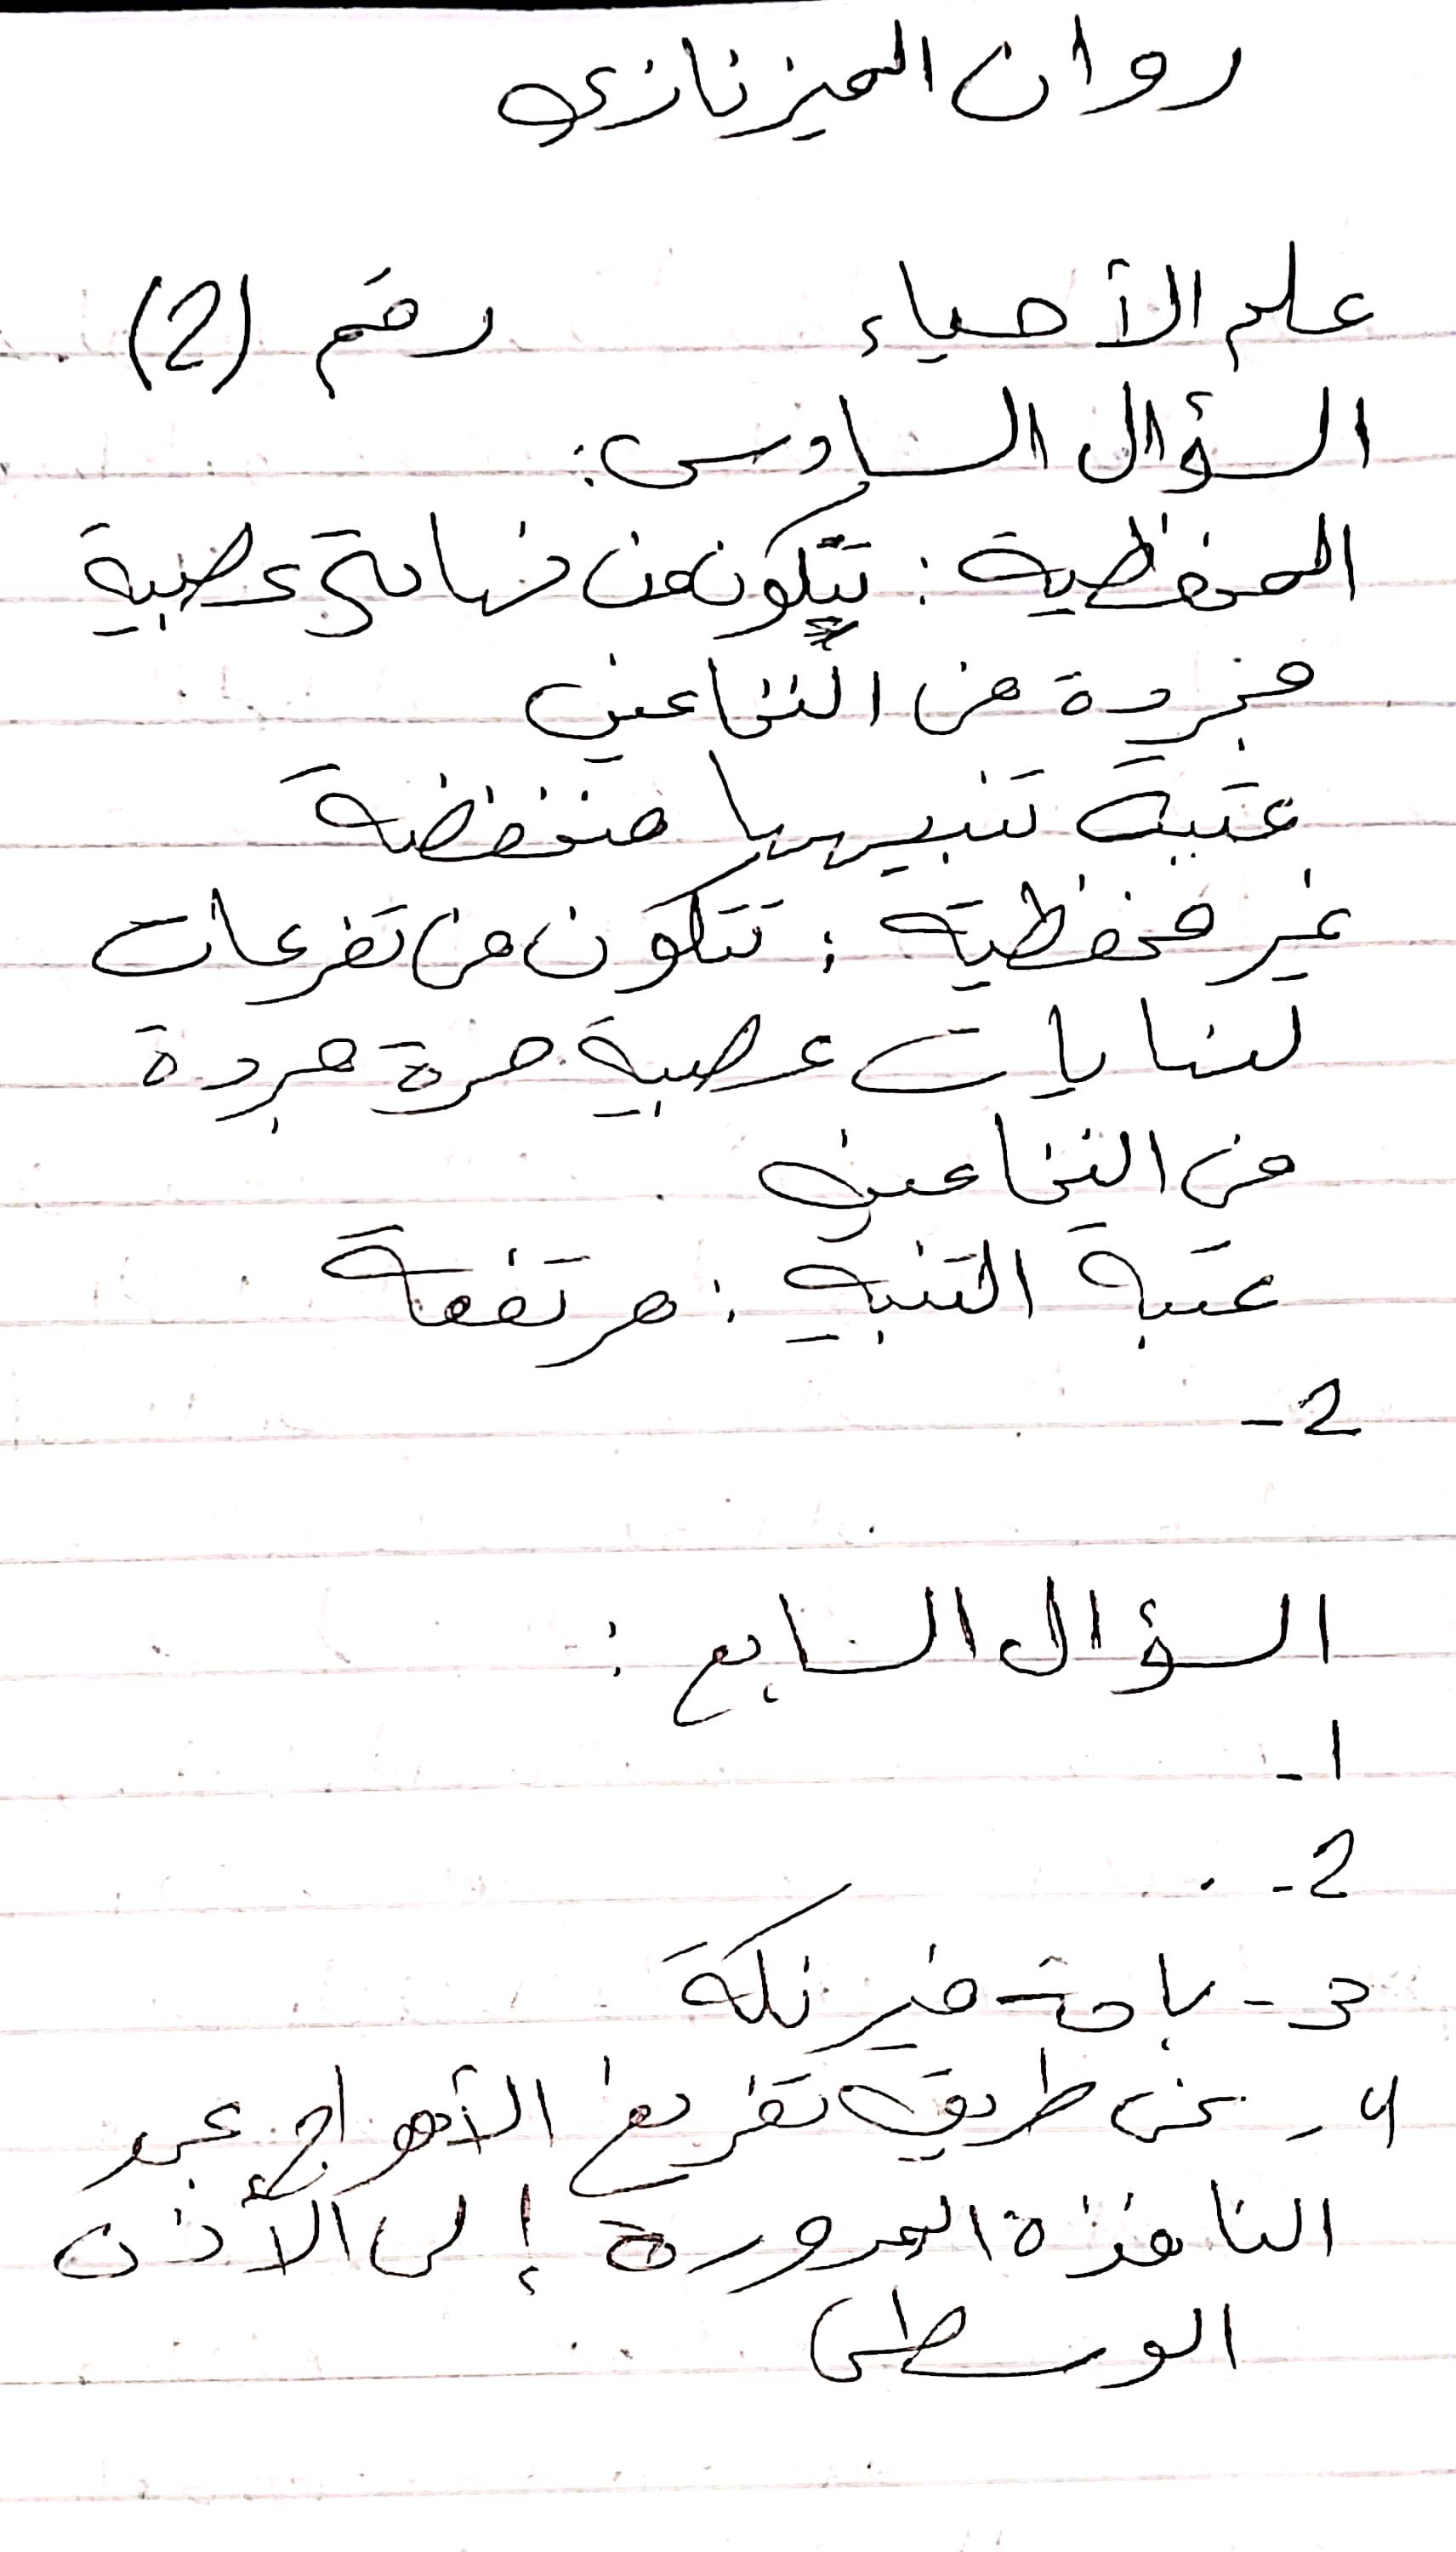 روان الميزنازي
علم الأحياء رقم (2)
السؤال السادس:
المحفظية: تتكون من نهاية عصبية
مجردة من النخاعين
عتبة تنبيهها منخفضة
غير محفظية: تتكون من تفرعات
لنهايات عصبية حرة مجردة
من النخاعين
عتبة التنبيه: مرتفعة
2-
السؤال السابع:
1-
2-
3- باحة فيرنكة
4- عن طريق تفريغ الأمواج عبر
النافذة المدورة إلى الأذن
الوسطى